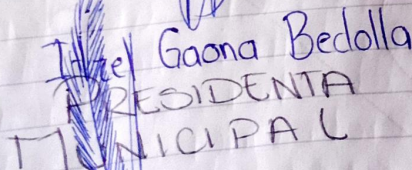 Itzel Gaona Bedolla
PRESIDENTA
MUNICIPAL